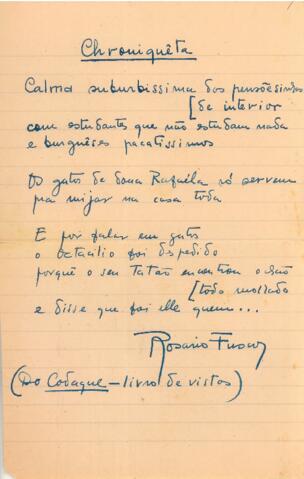 Chroniquêta
Calma suburbissima das pensõesinhas
[de interior
com estudantes que não estudam nada
e burguêses pacatissimos
Os gatos de dona Rafaéla só servem
pra mijar na casa toda
E por falar em gatos
o Octacilio foi despedido
porquê o seu Tatão encontrou o chão
[todo molhado
e disse que foi elle quem...
Rosario Fusco
(Do Codaque — livro de vistas)